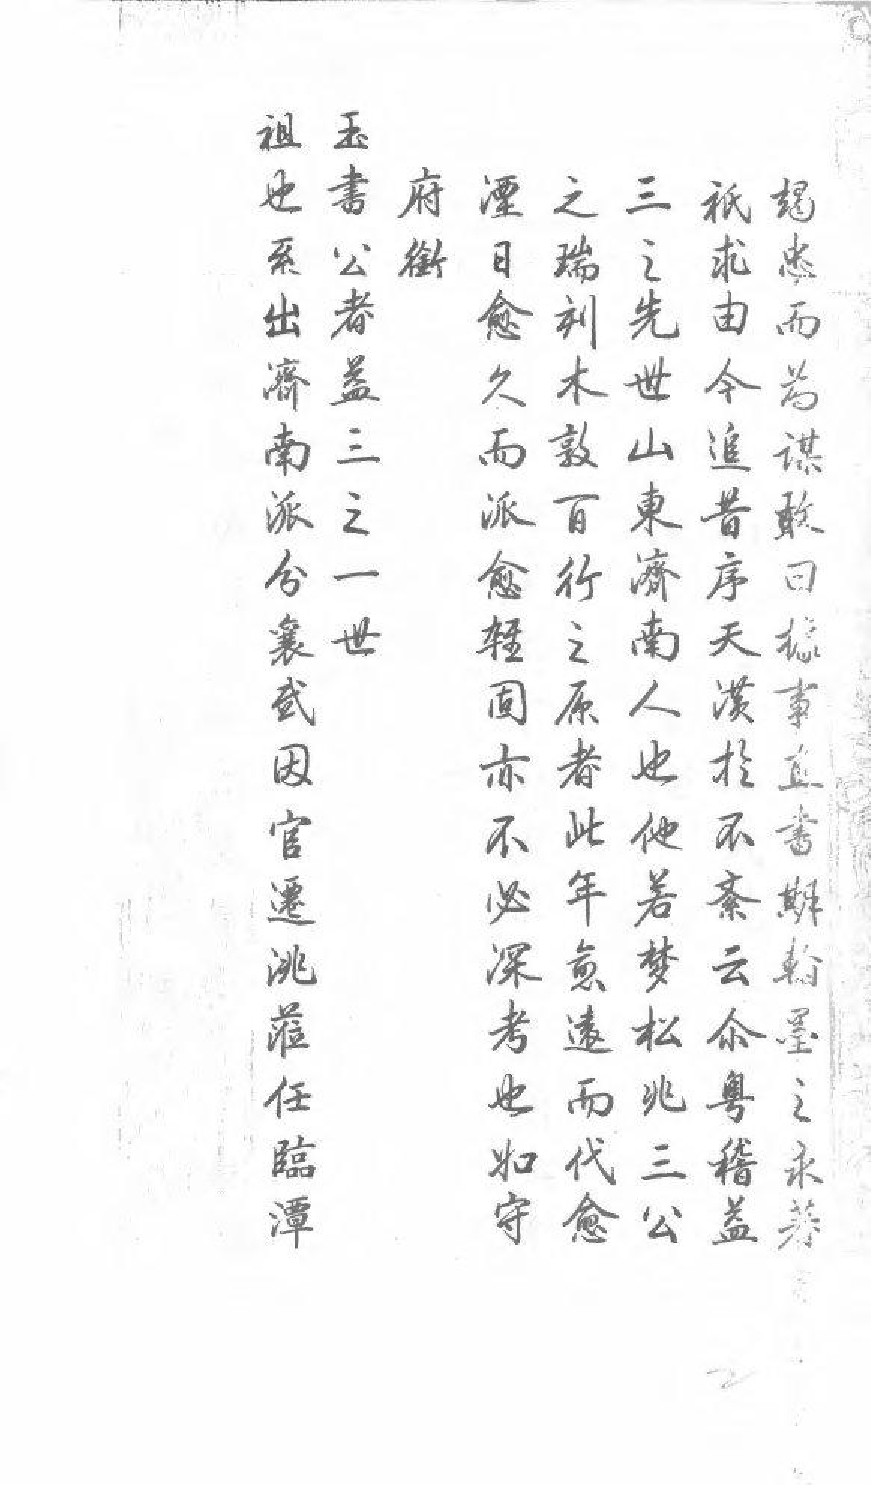 竭忠而為謀敢曰據事直書斯翰墨之永葆
祇求由今追昔序天潢於不紊云尒粵稽益
三之先世山東濟南人也他若梦松兆三公
之瑞刻木敦百行之原者此年愈遠而代愈
湮日愈久而派愈輕固亦不必深考也如守
府衛
玉書公者益三之一世
祖也系出濟南派分襄武因官遷洮蒞任臨潭
2